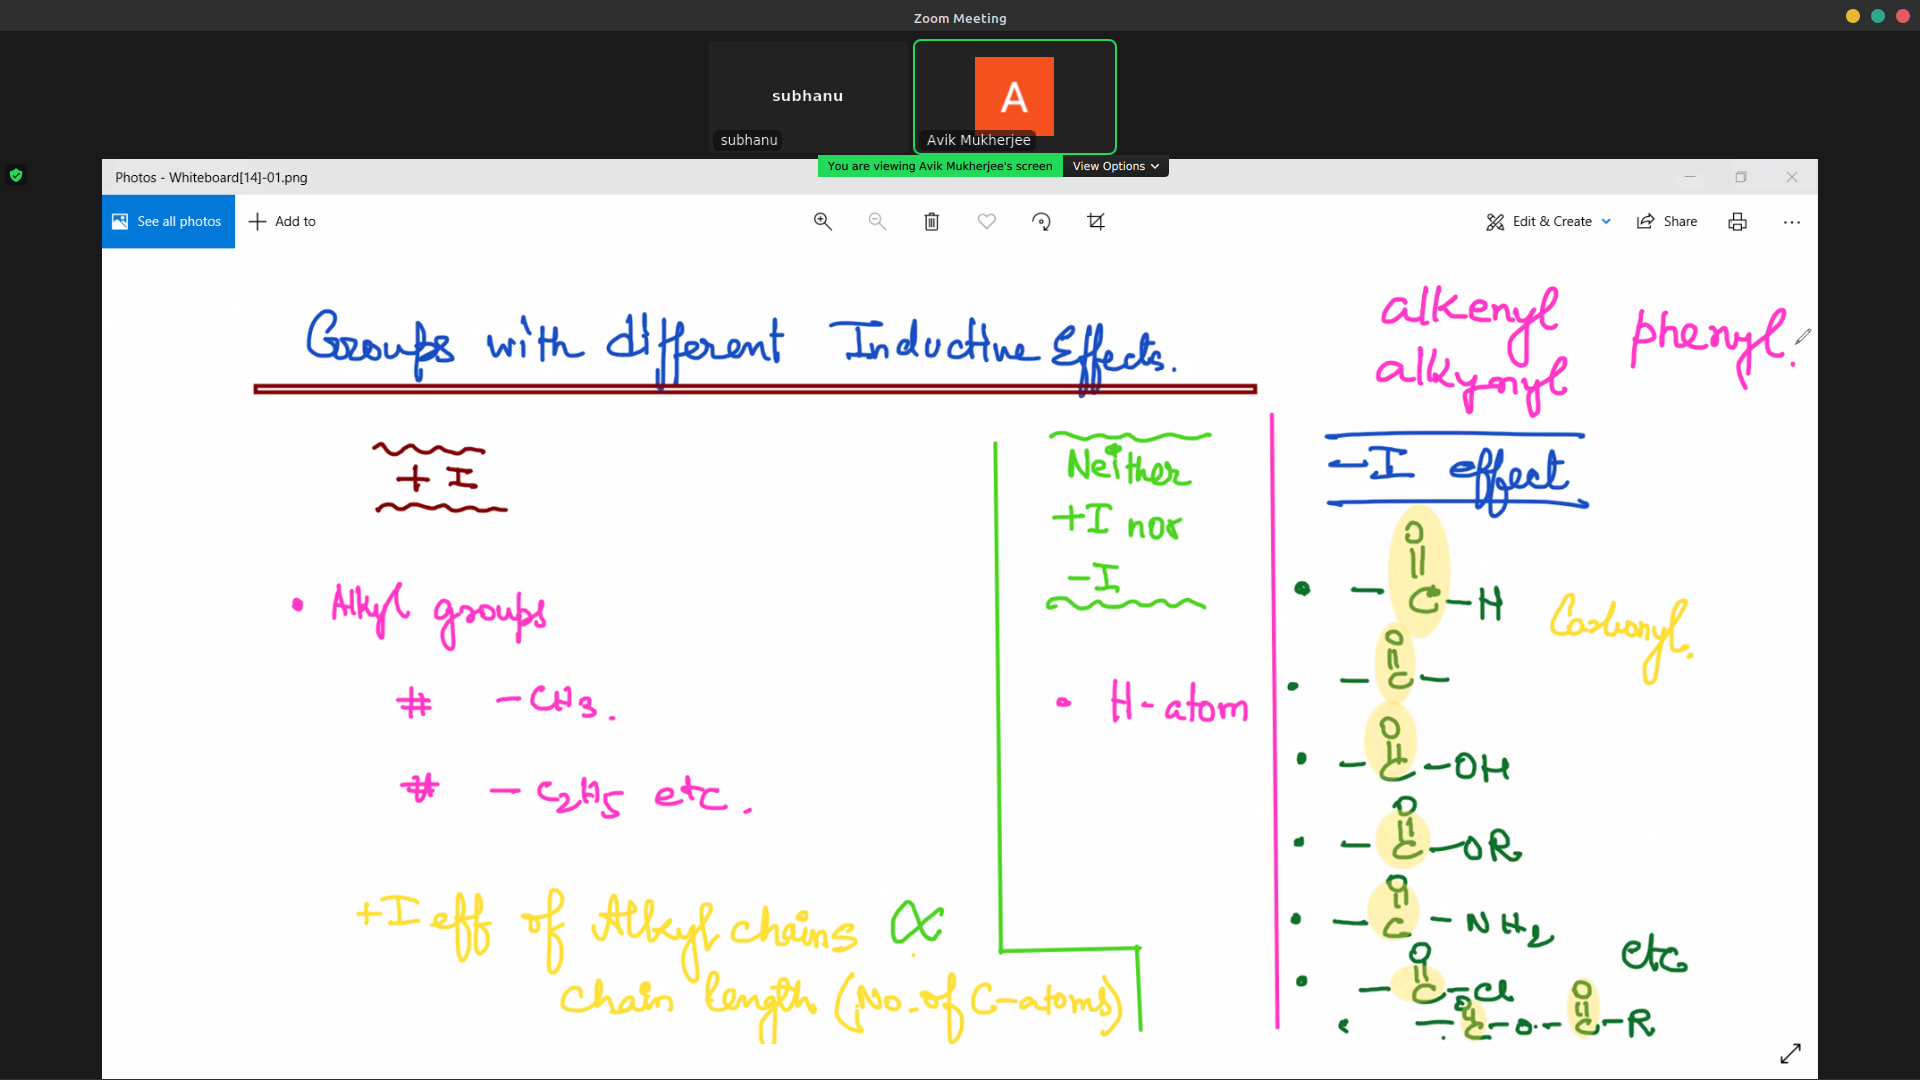 Zoom Meeting
subhanu
A
subhanu
Avik Mukherjee
You are viewing Avik Mukherjee's screen
View Options
Photos - Whiteboard[14]-01.png
See all photos
Add to
Edit & Create
Share
Groups with different Inductive Effects.
alkenyl
alkynyl
phenyl.
+ I
• Alkyl groups
# -CH3.
# -C2H5 etc.
+I eff of Alkyl chains ∝
chain length (No. of C-atoms)
Neither
+I nor
-I
• H-atom
-I effect
O
||
• -C-H
Carbonyl.
O
||
• -C-
O
||
• -C-OH
O
||
• -C-OR
O
||
• -C-NH2
etc
O
||
• -C-Cl
O O
|| ||
• -C-O-C-R